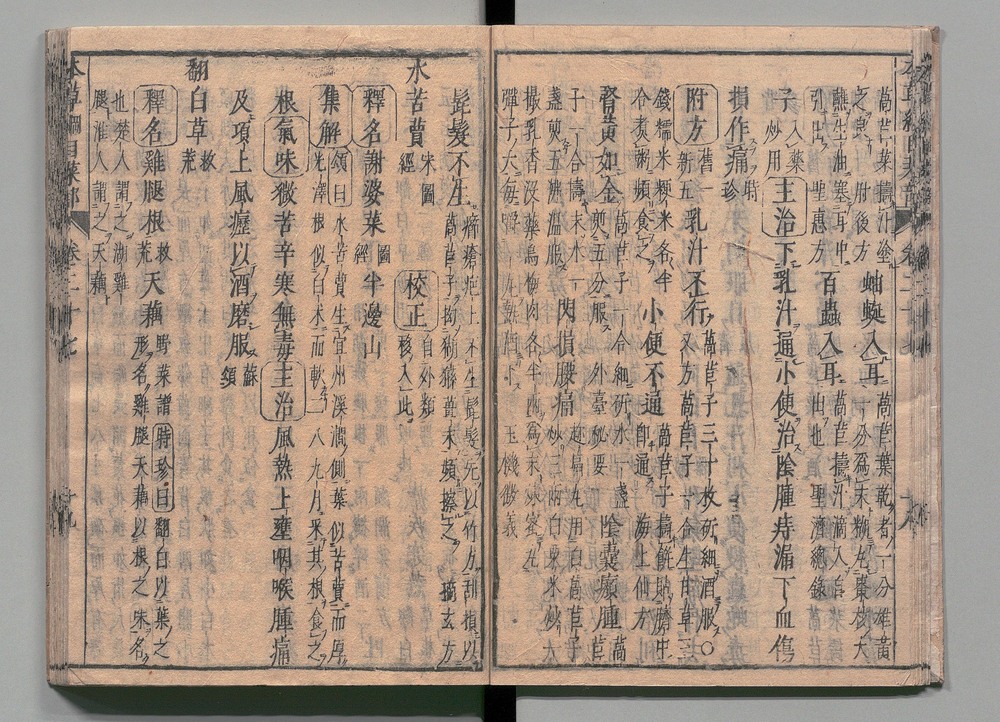 萵苣菜擣汁塗
之良 肘後方 蚰蜒入耳 萵苣葉乾者一分雄黃一分爲末糊丸棗核大
蘸生油塞耳中
引出 聖惠方 百蟲入耳 萵苣擣汁滴入自出也 聖濟總錄 萵苣
子 入藥炒用 主治 下乳汁通小便治陰腫痔漏下血傷
損作痛 時珍
附方 舊一新五 乳汁不行 萵苣子三十枚研細酒服〇又方萵苣子一合生甘草三
錢糯米粳米各半
合煮粥頻食之 小便不通 萵苣子擣餅貼臍中卽通 海上仙方
腎黃如金 萵苣子一合細研水一盞煎五分服 外臺秘要 陰囊㿗腫 萵苣
子一合擣末水一
盞煎五沸溫服 閃損腰痛 趁痛丸用白萵苣子炒三兩白粟米炒一
撮乳香沒藥烏梅肉各半兩爲末煉蜜丸
彈子大每嚼 玉機微義
髭髮不生 癤瘡疤上不生髭髮先以竹刀刮損以
萵苣子拗猢猻薑末頻擦之 摘玄方
水苦蕒 宋圖經 校正 自外類移入此
釋名 謝婆菜 圖經 半邊山
集解 頌曰水苦蕒生宜州溪澗側葉似苦蕒而厚
光澤根似白朮而軟二八九月采其根食之
根 氣味 微苦辛寒無毒 主治 風熱上壅咽喉腫痛
及項上風癧以酒磨服 蘇頌
翻白草 救荒
釋名 雞腿根 救荒 天藕 野菜譜 時珍曰翻白以葉之
形名雞腿天藕以根之味名
也楚人謂之湖雞
腿淮人謂之天藕
本草綱目菜部 卷二十七